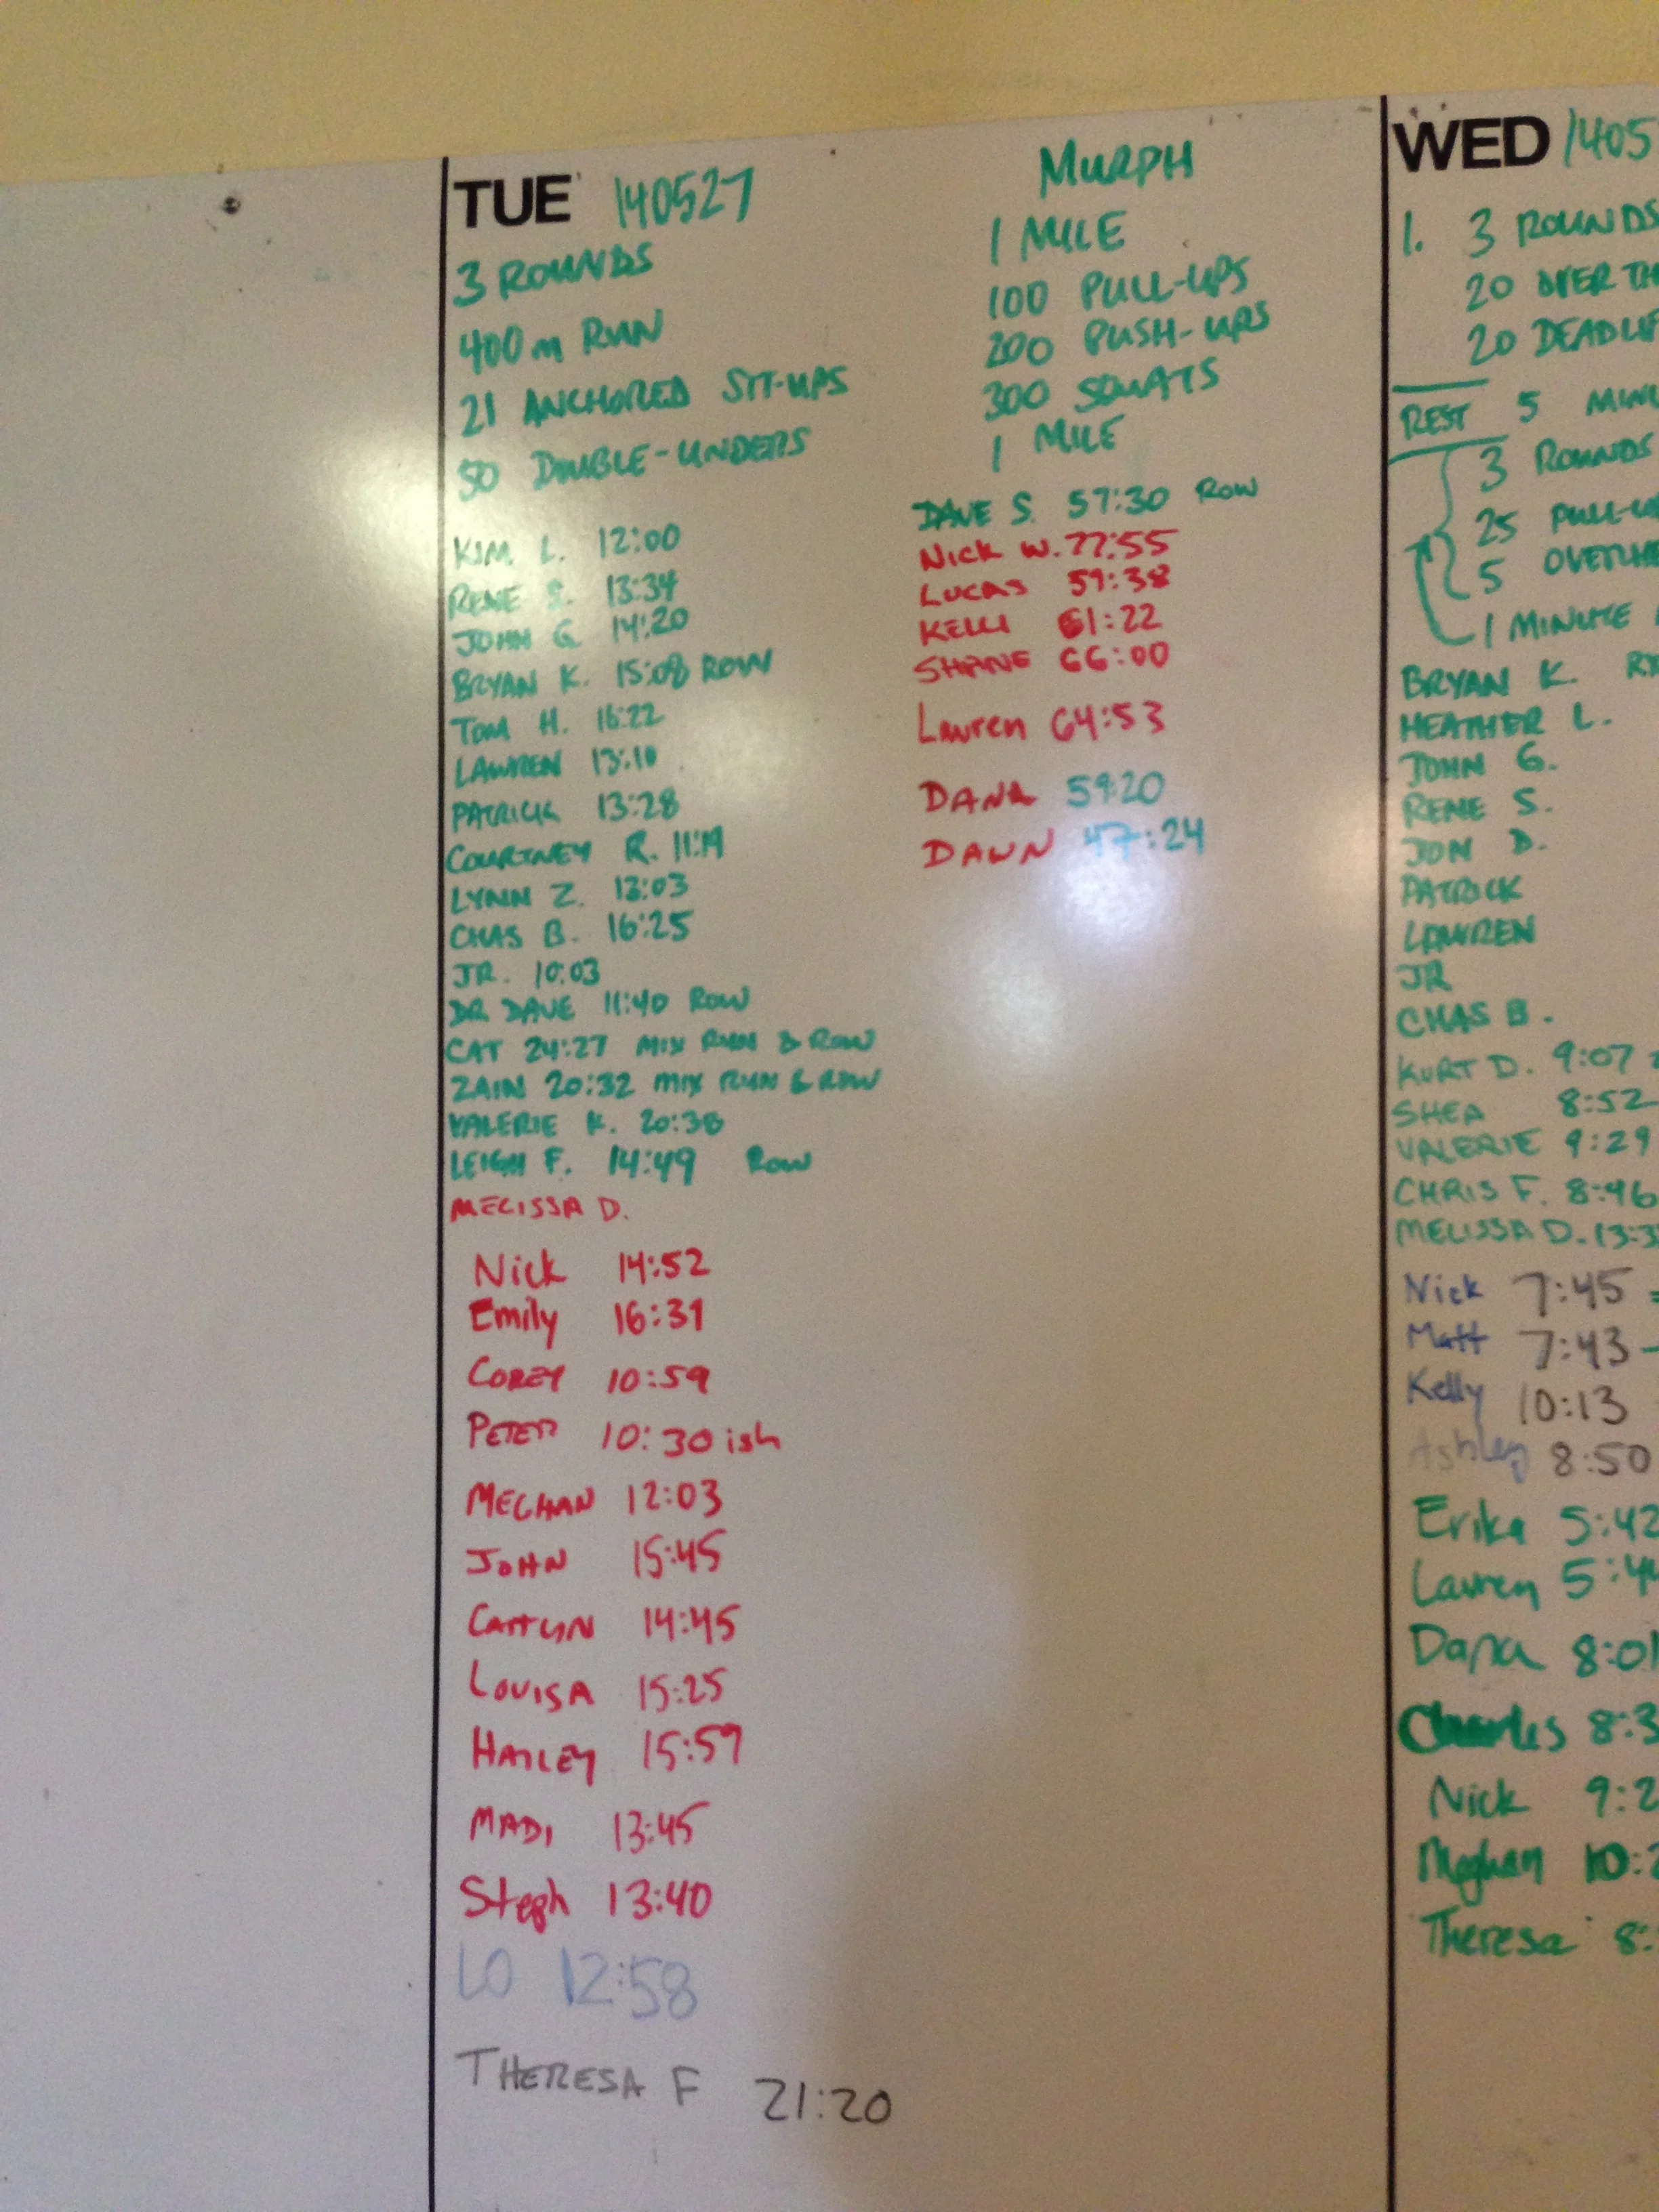 TUE 140527
3 ROUNDS
400m RUN
21 ANCHORED SIT-UPS
50 DOUBLE-UNDERS
KIM L. 12:00
RENE S. 13:34
JOHN G 14:20
BRYAN K. 15:08 ROW
TOM H. 16:22
LAUREN 13:10
PATRICK 13:28
COURTNEY R. 11:19
LYNN Z. 13:03
CHAS B. 16:25
JR. 10:03
DR DAVE 11:40 ROW
CAT 24:27 MIX RUN & ROW
ZAIN 20:32 MIX RUN & ROW
VALERIE K. 20:38
LEIGH F. 14:49 ROW
MELISSA D.
Nick 14:52
Emily 16:31
COREY 10:59
PETER 10:30 ish
MEGHAN 12:03
JOHN 15:45
CAITLYN 14:45
LOUISA 15:25
HAILEY 15:59
MADI 13:45
Steph 13:40
LO 12:58
THERESA F 21:20
MURPH
1 MILE
100 PULL-UPS
200 PUSH-UPS
300 SQUATS
1 MILE
DAVE S. 57:30 ROW
NICK W. 77:55
LUCAS 59:38
KELLI 61:22
SHANE 66:00
Lauren 64:53
DANA 59:20
DAWN 47:24
WED 1405
1. 3 ROUNDS
20 OVER TH
20 DEADLIF
REST 5 MINU
3 ROUNDS
25 PULL-U
5 OVERHE
1 MINUTE
BRYAN K.
HEATHER L.
JOHN G.
RENE S.
JON D.
PATRICK
LAUREN
JR
CHAS B.
KURT D. 9:07
SHEA 8:52
VALERIE 9:29
CHRIS F. 8:46
MELISSA D. 13:3
Nick 7:45
Matt 7:43
Kelly 10:13
Ashley 8:50
Erika 5:42
Lauren 5:44
Dana 8:01
Charles 8:3
Nick 9:2
Meghan 10:2
Theresa 8: